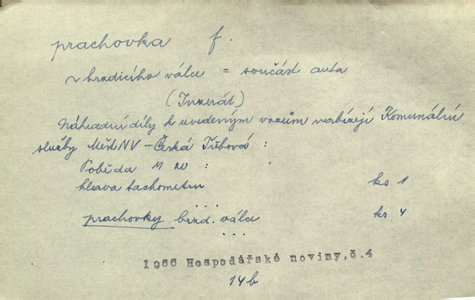 prachovka f.
~ brzdicího válce = součást auta
(Inzerát)
Náhradní díly k uvedeným vozům nabízejí Komunální
služby MěstNV - Česká Třebová :
Poběda M 20 :
hlava tachometru ks 1
...
prachovky brzd. válce ks 4
...
1966 Hospodářské noviny,č.4
14b